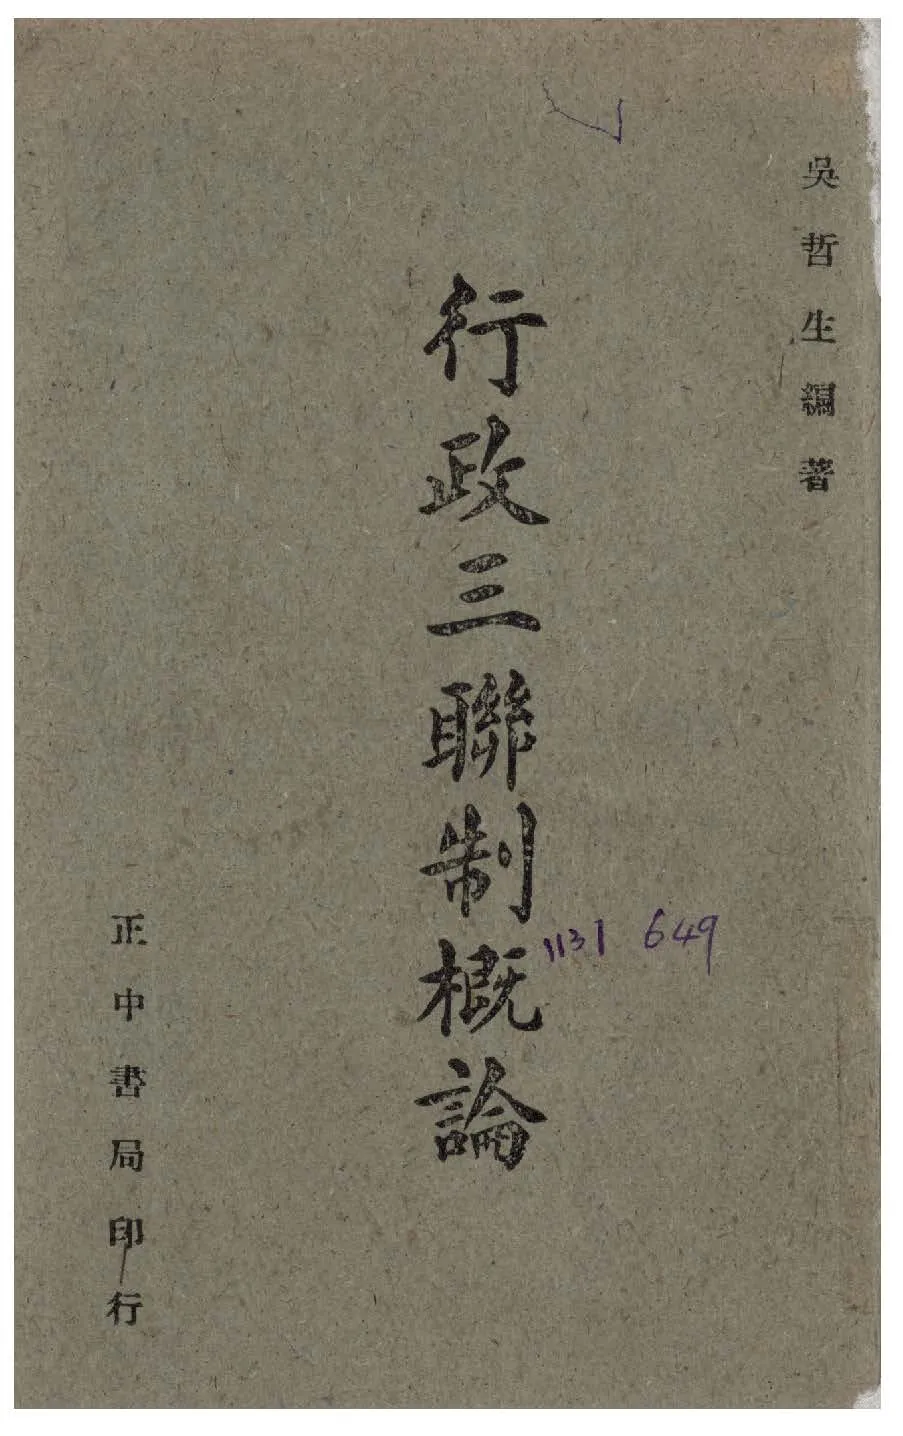 吳哲生編著
行政三聯制概論
1131 649
正中書局印行